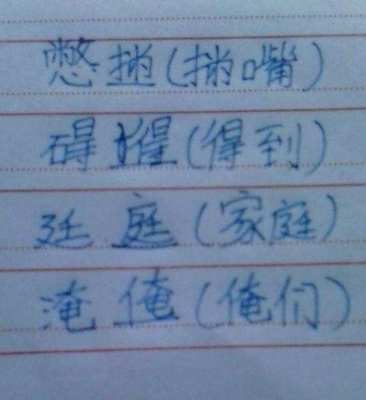 憋 (嘴)
碍 (得到)
廷 庭(家庭)
淹 俺(俺们)